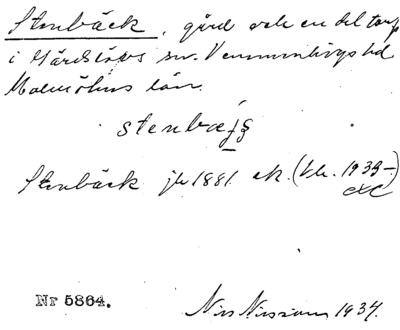 Stenbäck, gård och en del torp
i Gärdslövs sn. Vemmenhögs hd
Malmöhus län.
Stenbäck jb 1881. ek.
Nr 5864.
Nils Nilsson 1934.